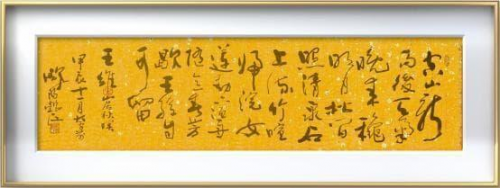 空山新
雨後天氣
晚来穐
明月松間
照清泉石
上流竹喧
歸浣女
蓮動下漁舟
随意春芳
歇王孫自
可留
王維山居秋暝
甲辰